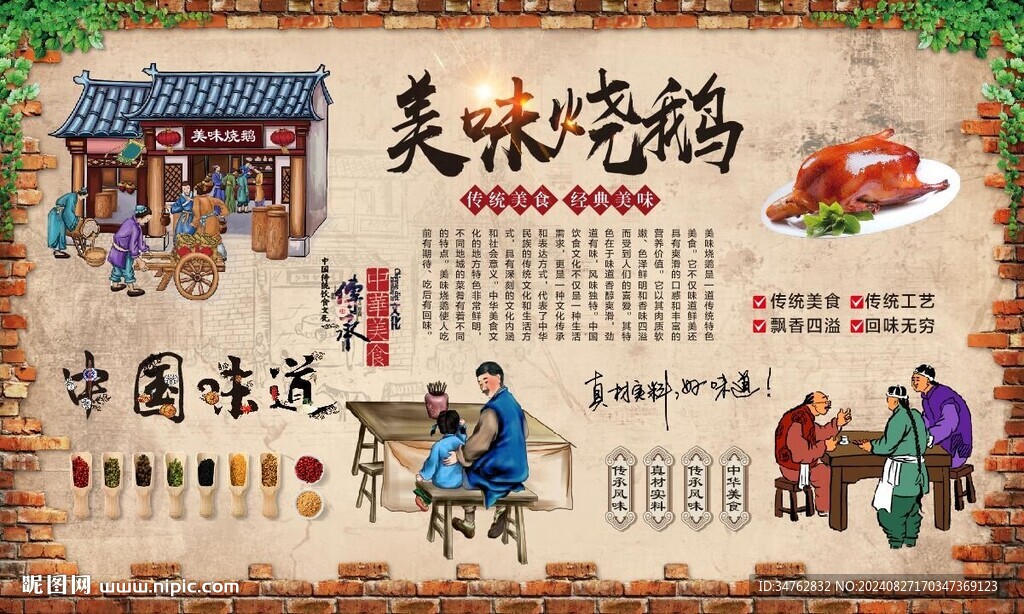 美味烧鹅
美味烧鹅
传统美食 经典美味
美味烧鹅是一道传统特色
美食。它不仅味道鲜美还
具有爽滑的口感和丰富的
营养价值。它以其肉质软
嫩、色泽鲜明和香味四溢
而受到人们的喜爱。其特
色在于味道香醇爽滑，劲
道有味，风味独特。中国
饮食文化不仅是一种生活
需求，更是一种文化传承
和表达方式，代表了中华
民族的传统文化和生活方
式，具有深刻的文化内涵
和社会意义。中华美食文
化的地方特色非常鲜明，
不同地域的菜肴有着不同
的特点。美味烧鹅使人吃
前有期待、吃后有回味。
文化
中華美食
傳承
中国传统饮食文化
传统美食 传统工艺
飘香四溢 回味无穷
中国味道
真材实料，好味道！
中华美食
传承风味
真材实料
传承风味
昵图网 www.nipic.com
ID:34762832 NO:20240827170347369123